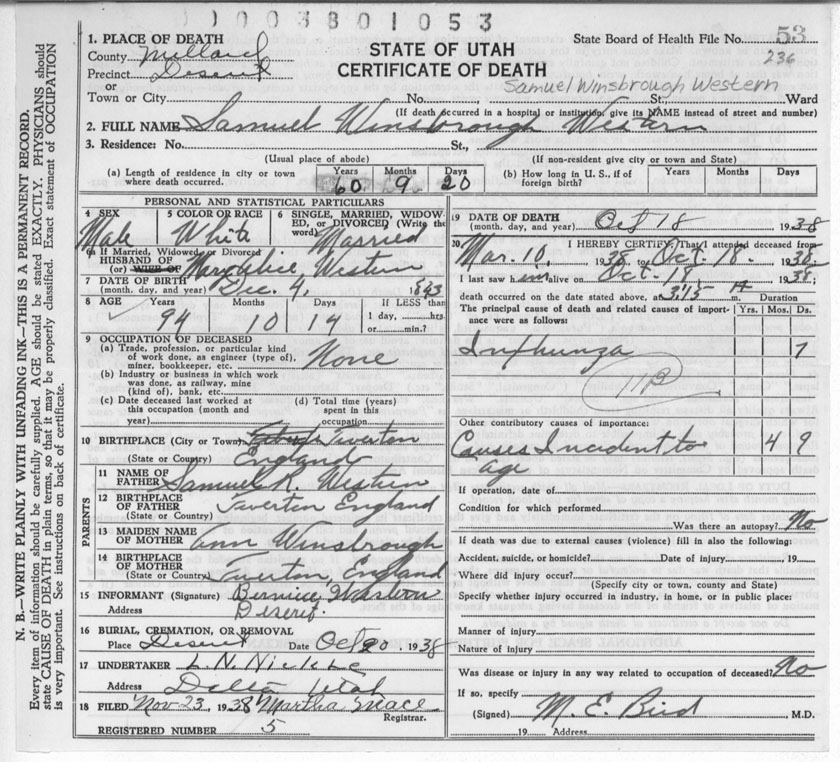 0003801053
N. B.—WRITE PLAINLY WITH UNFADING INK—THIS IS A PERMANENT RECORD.
Every item of information should be carefully supplied. AGE should be stated EXACTLY. PHYSICIANS should
state CAUSE OF DEATH in plain terms, so that it may be properly classified. Exact statement of OCCUPATION
is very important. See instructions on back of certificate.
STATE OF UTAH
CERTIFICATE OF DEATH
State Board of Health File No. 53
236
1. PLACE OF DEATH
County Millard
Precinct Deseret
or
Town or City No. St., Ward
Samuel Winsbrough Western
(If death occurred in a hospital or institution, give its NAME instead of street and number)
2. FULL NAME Samuel Winsbrough Western
3. Residence: No. St.,
(Usual place of abode) (If non-resident give city or town and State)
(a) Length of residence in city or town where death occurred. Years 60 Months 9 Days 20
(b) How long in U. S., if of foreign birth? Years Months Days
PERSONAL AND STATISTICAL PARTICULARS
4 SEX Male
5 COLOR OR RACE White
6 SINGLE, MARRIED, WIDOWED, or DIVORCED (Write the word) Married
6a If Married, Widowed or Divorced
HUSBAND OF
(or) WIFE OF Mary Alice Western
7 DATE OF BIRTH
(month, day, and year) Dec. 4, 1843
8 AGE Years 94 Months 10 Days 14 If LESS than
1 day, hrs.
or min.?
9 OCCUPATION OF DECEASED
(a) Trade, profession, or particular kind
of work done, as engineer (type of),
miner, bookkeeper, etc. None
(b) Industry or business in which work
was done, as railway, mine
(kind of), bank, etc.
(c) Date deceased last worked at this occupation (month and year)
(d) Total time (years) spent in this occupation
10 BIRTHPLACE (City or Town) Tiverton
(State or Country) England
PARENTS
11 NAME OF
FATHER Samuel R. Western
12 BIRTHPLACE
OF FATHER Tiverton England
(State or Country)
13 MAIDEN NAME
OF MOTHER Ann Winsbrough
14 BIRTHPLACE
OF MOTHER
(State or Country) Tiverton, England
15 INFORMANT (Signature) Bernice Western
Address Deseret.
16 BURIAL, CREMATION, OR REMOVAL
Place Deseret Date Oct 20, 1938
17 UNDERTAKER L. N.
Address Delta Utah
18 FILED Nov. 23, 1938 Martha
Registrar.
REGISTERED NUMBER 5
19 DATE OF DEATH
(month, day, and year) Oct 18 1938
20. I HEREBY CERTIFY, That I attended deceased from
Mar. 10, 1938, to Oct. 18- 1938;
I last saw him alive on Oct. 18, 1938;
death occurred on the date stated above, at 3:15 m. Duration
The principal cause of death and related causes of importance were as follows: Yrs. Mos. Ds.
Influenza 7
11B
Other contributory causes of importance:
Causes Incident to 4 9
age
If operation, date of
Condition for which performed
Was there an autopsy? No
If death was due to external causes (violence) fill in also the following:
Accident, suicide, or homicide? Date of injury , 19
Where did injury occur?
(Specify city or town, county and State)
Specify whether injury occurred in industry, in home, or in public place:
Manner of injury
Nature of injury
Was disease or injury in any way related to occupation of deceased? No
If so, specify
(Signed) M. E. Bird M.D.
19 Address